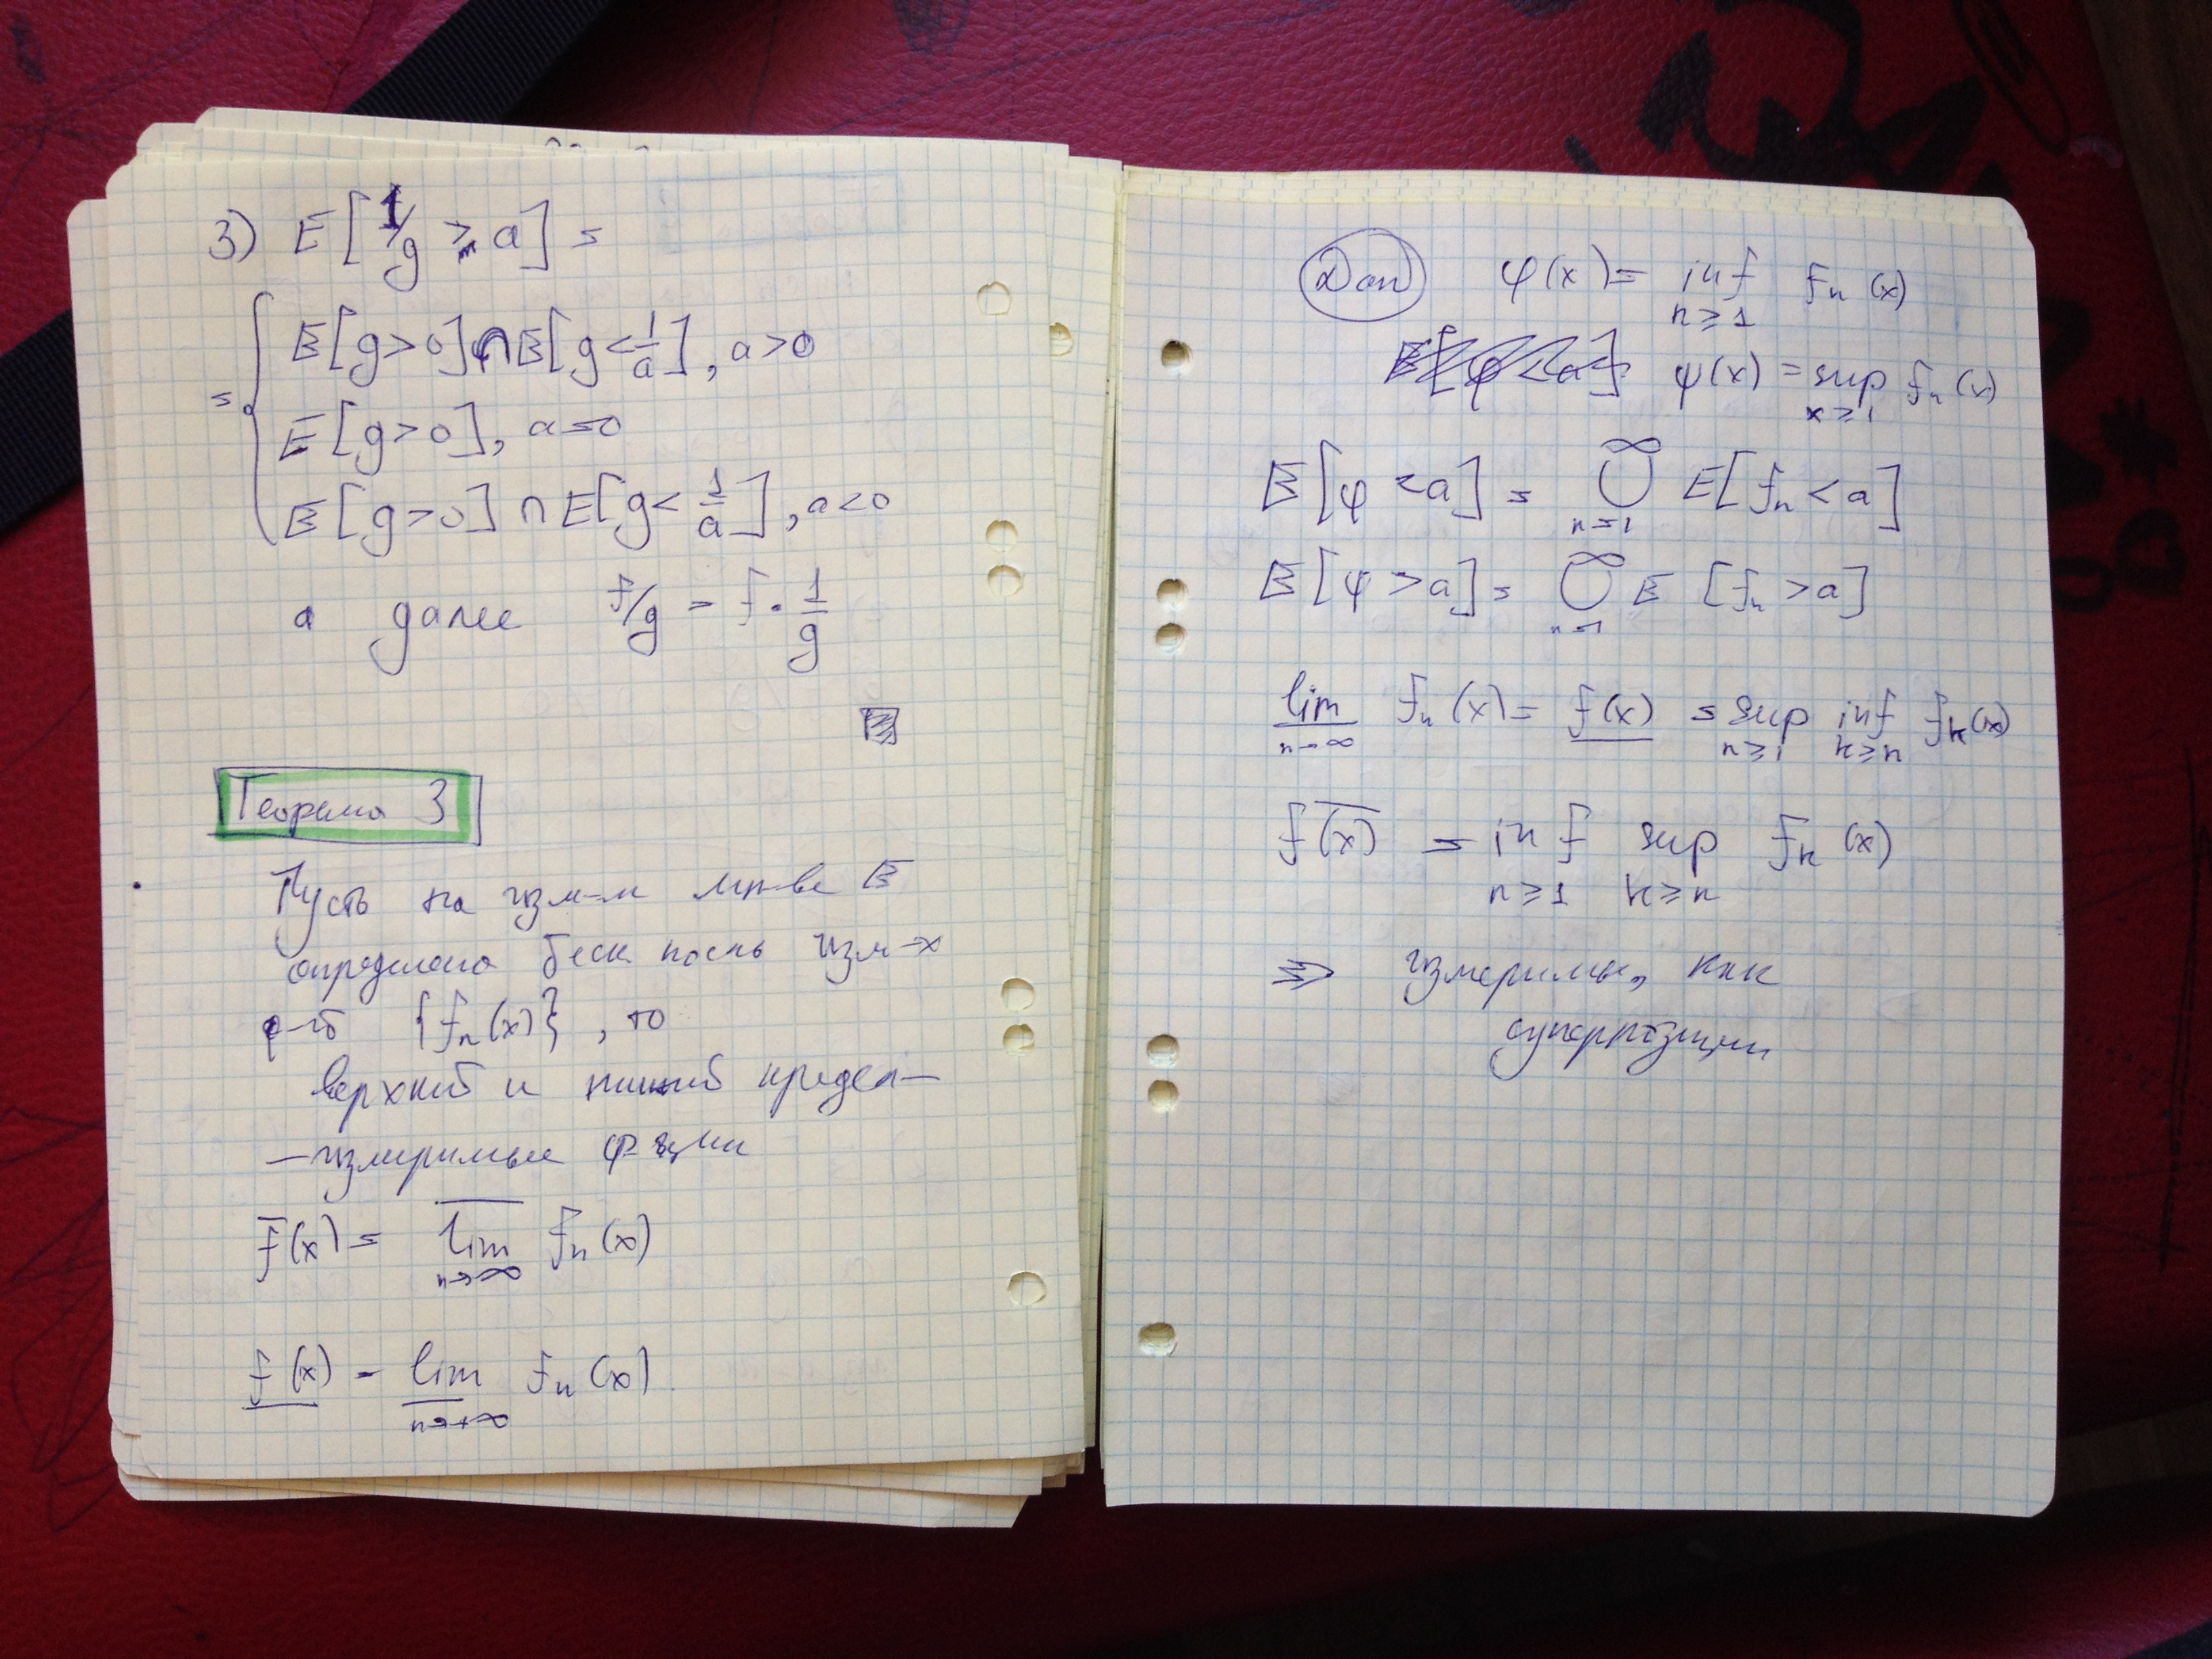 3) E[1/g ≥ a] =
= { E[g>0] ∩ E[g<1/a], a>0
E[g>0], a=0
E[g>0] ∩ E[g< 1/a], a<0
а далее f/g = f · 1/g
Теорема 3
Пусть на изм-м мн-ве E
определена беск посль изм-х
ф-ий {fn(x)}, то
верхний и нижний предел-
-измеримые ф-ции
f̅(x) = l̅i̅m̅ n→∞ fn(x)
f̲(x) = l̲i̲m̲ n→+∞ fn(x)
Док φ(x) = inf n≥1 fn(x)
ψ(x) = sup x≥1 fn(x)
E[φ<a] = ∞ ∪ n=1 E[fn<a]
E[ψ>a] = ∞ ∪ n=1 E [fn>a]
l̲i̲m̲ n→∞ fn(x) = f̲(x) = sup n≥1 inf k≥n fk(x)
f̅(x) = inf n≥1 sup k≥n fk(x)
⇒ измеримы, как
суперпозиции